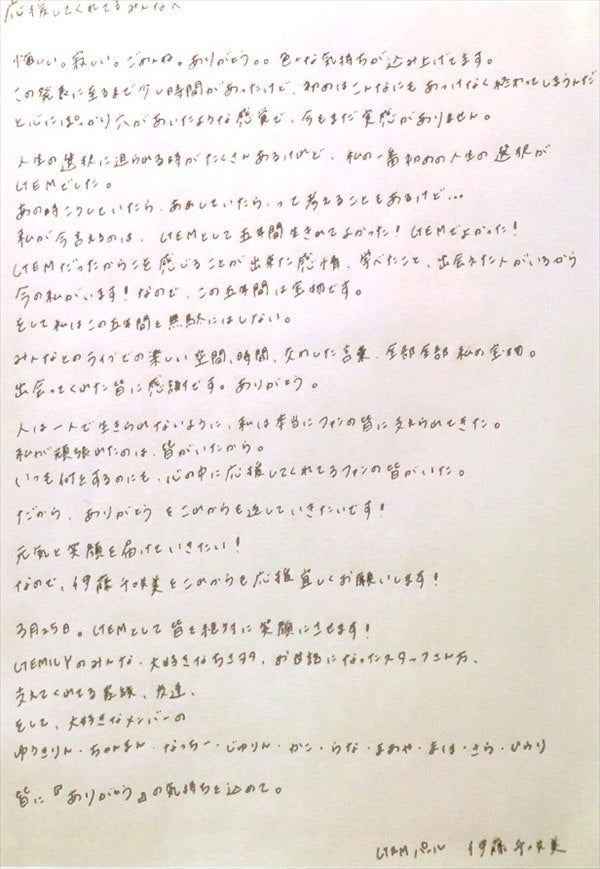 応援してくれてるみんなへ
悔しい。寂しい。ごめんね。ありがとう。。色々な気持ちが込み上げてます。
この発表に至るまで少し時間があったけど、初めはこんなにもあっけなく終わってしまうんだ
と心にぽっかり穴があいたような感覚で、今もまだ実感がありません。
人生の選択に迫られる時がたくさんあるけど、私の一番初めの人生の選択が
でした。
あの時こうしていたら、ああしていたら、って考えることもあるけど…
私が今言えるのは、として五年間生きれてよかった！でよかった！
だったからこそ感じることが出来た感情、学べたこと、出会えた人がいるから
今の私がいます！なので、この五年間は宝物です。
そして私はこの五年間を無駄にはしない。
みんなとのライブでの楽しい空間、時間、交わした言葉、全部全部私の宝物。
出会ってくれた皆に感謝です。ありがとう。
人は一人で生きられないように、私は本当にファンの皆に支えられてきた。
私が頑張れたのは、皆がいたから。
いつも何をするのにも、心の中に応援してくれてるファンの皆がいた。
だから、ありがとうをこれからも返していきたいです！
元気と笑顔を届けていきたい！
なので、伊藤千咲美をこれからも応援宜しくお願いします！
3月25日。として皆を絶対に笑顔にさせます！
のみんな、大好きなお世話になったスタッフさん方、
支えてくれてる家族、友達、
そして、大好きなメンバーの
ゆうきりん・ちゃんまん・なっちー・じゅりん・かこ・らな・まあや・まほ・さら・ひめり
皆に『ありがとう』の気持ちを込めて。
パール 伊藤千咲美